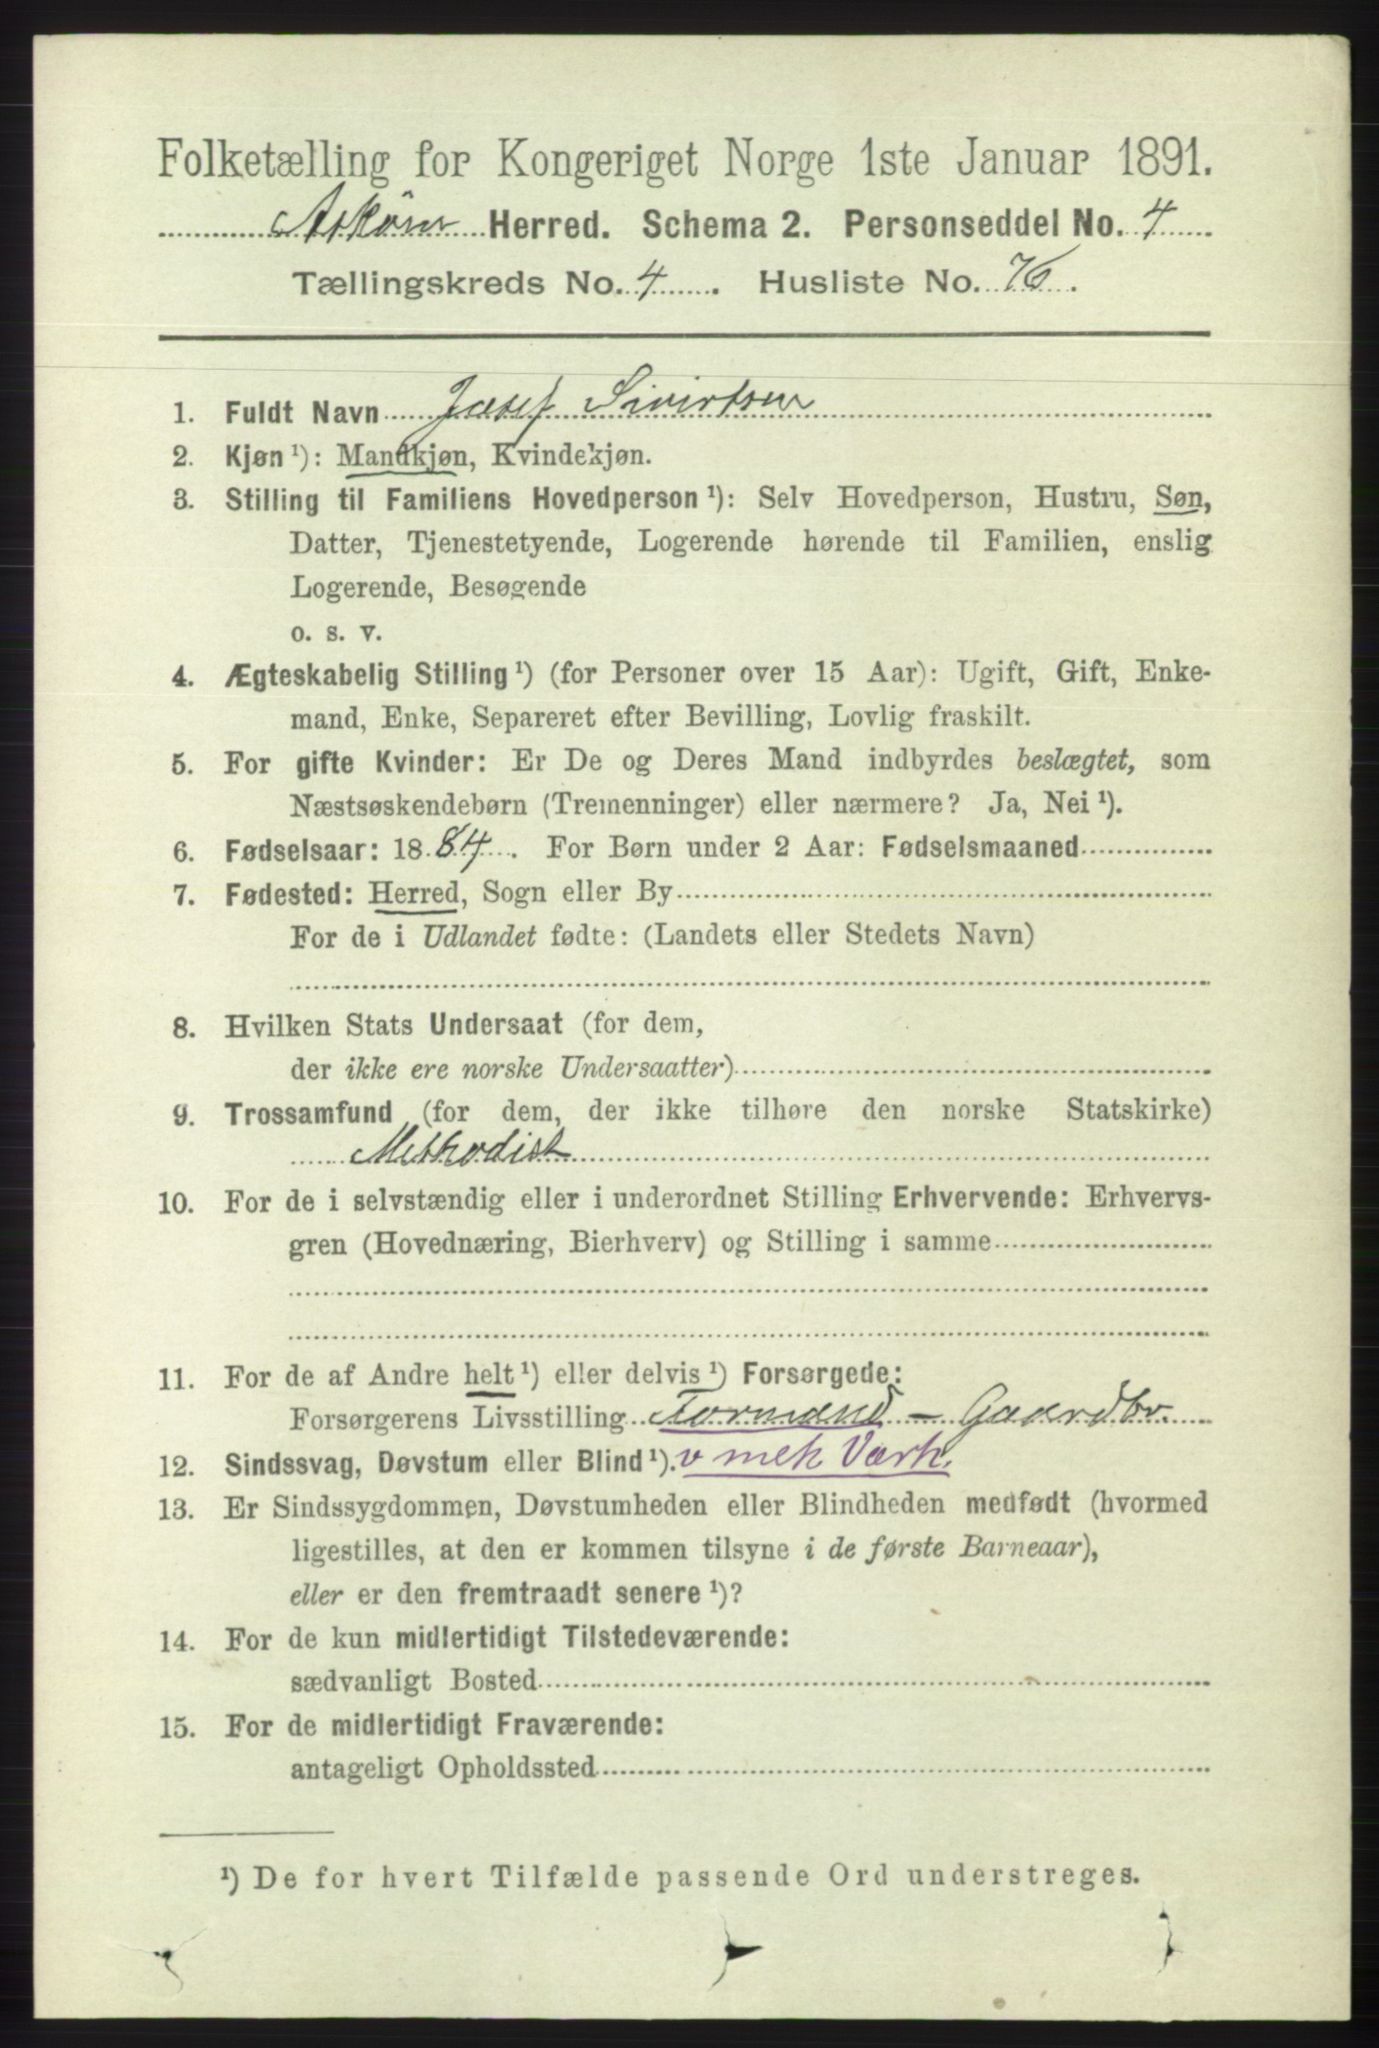 Folketælling for Kongeriget Norge 1ste Januar 1891.
Askim Herred. Schema 2. Personseddel No. 4
Tællingskreds No. 4. Husliste No. 76.
1. Fuldt Navn Josef Sivirtsen
2. Kjøn ¹): Mandkjøn, Kvindekjøn.
3. Stilling til Familiens Hovedperson ¹): Selv Hovedperson, Hustru, Søn,
Datter, Tjenestetyende, Logerende hørende til Familien, enslig
Logerende, Besøgende
o. s. v.
4. Ægteskabelig Stilling ¹) (for Personer over 15 Aar): Ugift, Gift, Enke-
mand, Enke, Separeret efter Bevilling, Lovlig fraskilt.
5. For gifte Kvinder: Er De og Deres Mand indbyrdes beslægtet, som
Næstsøskendebørn (Tremenninger) eller nærmere? Ja, Nei ¹).
6. Fødselsaar: 1884. For Børn under 2 Aar: Fødselsmaaned
7. Fødested: Herred, Sogn eller By
For de i Udlandet fødte: (Landets eller Stedets Navn)
8. Hvilken Stats Undersaat (for dem,
der ikke ere norske Undersaatter)
9. Trossamfund (for dem, der ikke tilhøre den norske Statskirke)
Methodist
10. For de i selvstændig eller i underordnet Stilling Erhvervende: Erhvervs-
gren (Hovednæring, Bierhverv) og Stilling i samme
11. For de af Andre helt ¹) eller delvis ¹) Forsørgede:
Forsørgerens Livsstilling Formand - Gaardbr.
12. Sindssvag, Døvstum eller Blind ¹). v mek Værk.
13. Er Sindssygdommen, Døvstumheden eller Blindheden medfødt (hvormed
ligestilles, at den er kommen tilsyne i de første Barneaar),
eller er den fremtraadt senere ¹)?
14. For de kun midlertidigt Tilstedeværende:
sædvanligt Bosted
15. For de midlertidigt Fraværende:
antageligt Opholdssted
¹) De for hvert Tilfælde passende Ord understreges.